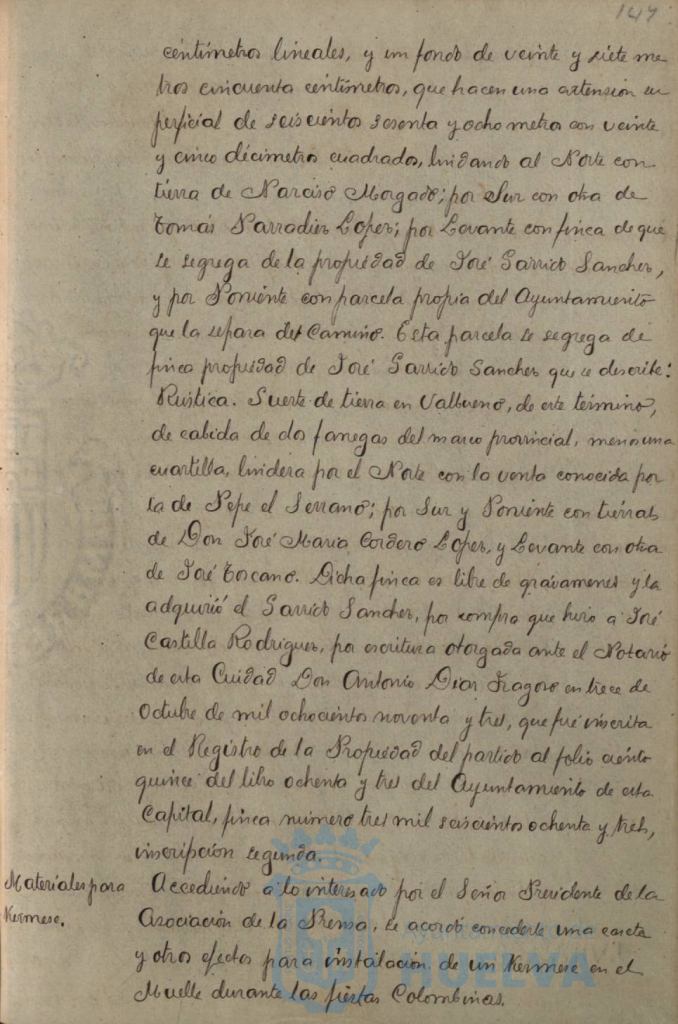 147
centímetros lineales, y un fondo de veinte y siete me
tros cincuenta centímetros, que hacen una extensión su
perficial de seiscientos sesenta y ocho metros con veinte
y cinco décimetros cuadrados, lindando al Norte con
tierra de Narciso Morgado; por Sur con otra de
Tomás Parradier López; por Levante con finca de que
se segrega de la propiedad de José Garrido Sanchez,
y por Poniente con parcela propia del Ayuntamiento
que la separa del Camino. Esta parcela se segrega de
finca propiedad de José Garrido Sanchez que se describe:
Rústica. Suerte de tierra en Valbueno, de este término,
de cabida de dos fanegas del marco provincial, menos una
cuartilla, lindera por el Norte con la venta conocida por
la de Pepe el Serrano; por Sur y Poniente con tierras
de Don José María Cordero López, y Levante con otra
de José Toscano. Dicha finca es libre de gravamenes y la
adquirió el Garrido Sanchez, por compra que hizo a José
Castilla Rodriguez, por escritura otorgada ante el Notario
de esta Cuidad Don Antonio Diaz Fragoso en trece de
Octubre de mil ochocientos noventa y tres, que fué inscrita
en el Registro de la Propiedad del partido al folio ciento
quince del libro ochenta y tres del Ayuntamiento de esta
Capital, finca número tres mil seiscientos ochenta y tres,
inscripción segunda.
Materiales para
Kermese.
Accediendo a lo interesado por el Señor Presidente de la
Asociación de la Prensa, se acordó concederle una caseta
y otros efectos para instalación de un Kermese en el
Muelle durante las fiestas Colombinas.
HUELVA